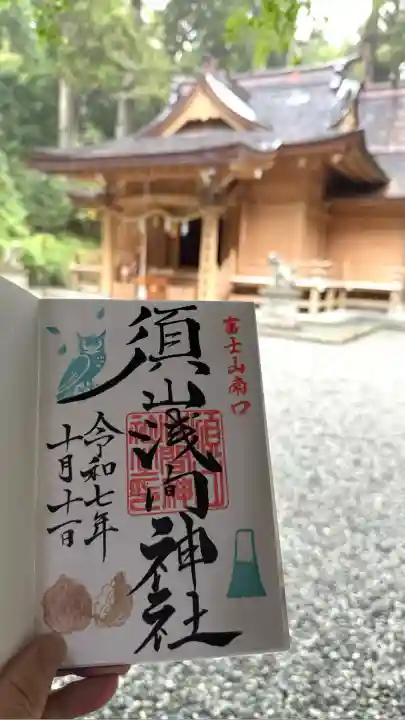 富士山南口
須山浅間神社
令和七年
十月十一日